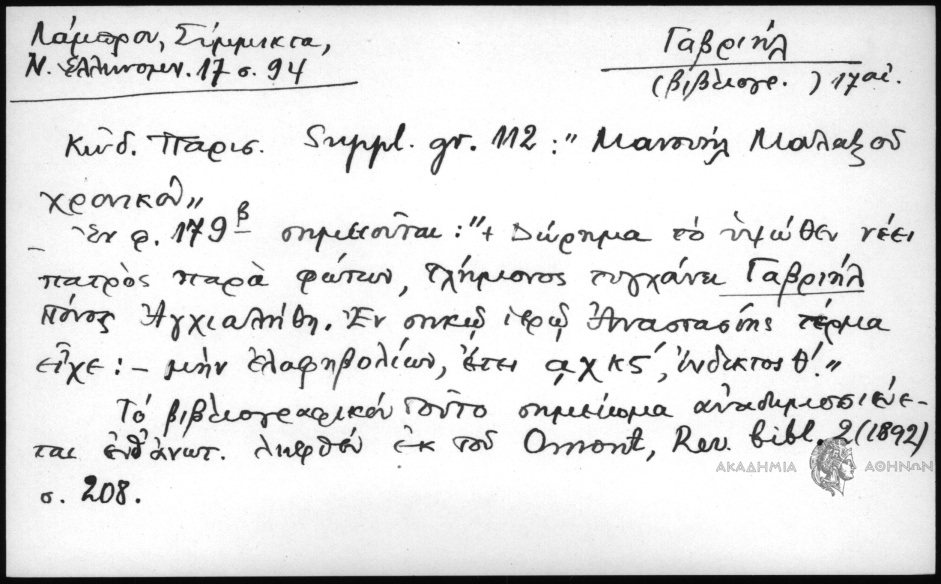 Λάμπρου, Σύμμικτα,
Ν. Ἑλληνομν. 17 σ. 94
Γαβριήλ
(βιβλιογρ. ) 17 αἰ.
Κώδ. Παρισ. Suppl. gr. 112 : "Μανουήλ Μαλαξοῦ
χρονικόν"
– Ἐν φ. 179β σημειοῦται: "+ Δώρημα τὸ ὑψόθεν νέει
πατρὸς παρὰ φώτων, τλήμονος τυγχάνει Γαβριήλ
πόνος Ἀγχιαλήθη. Ἐν σηκῷ ἱερῷ Ἀναστασίης τέρμα
εἶχε : – μὴν ἐλαφηβολίων, ἔτει αχκϛ´, ἰνδικτος θ´."
Τὸ βιβλιογραφικὸν τοῦτο σημείωμα ἀναδημοσιεύε-
ται ἐνθ' ἀνωτ. ληφθὲν ἐκ τοῦ Omont, Rev. bibl. 2 (1892)
σ. 208.
ΑΚΑΔΗΜΙΑ ΑΘΗΝΩΝ